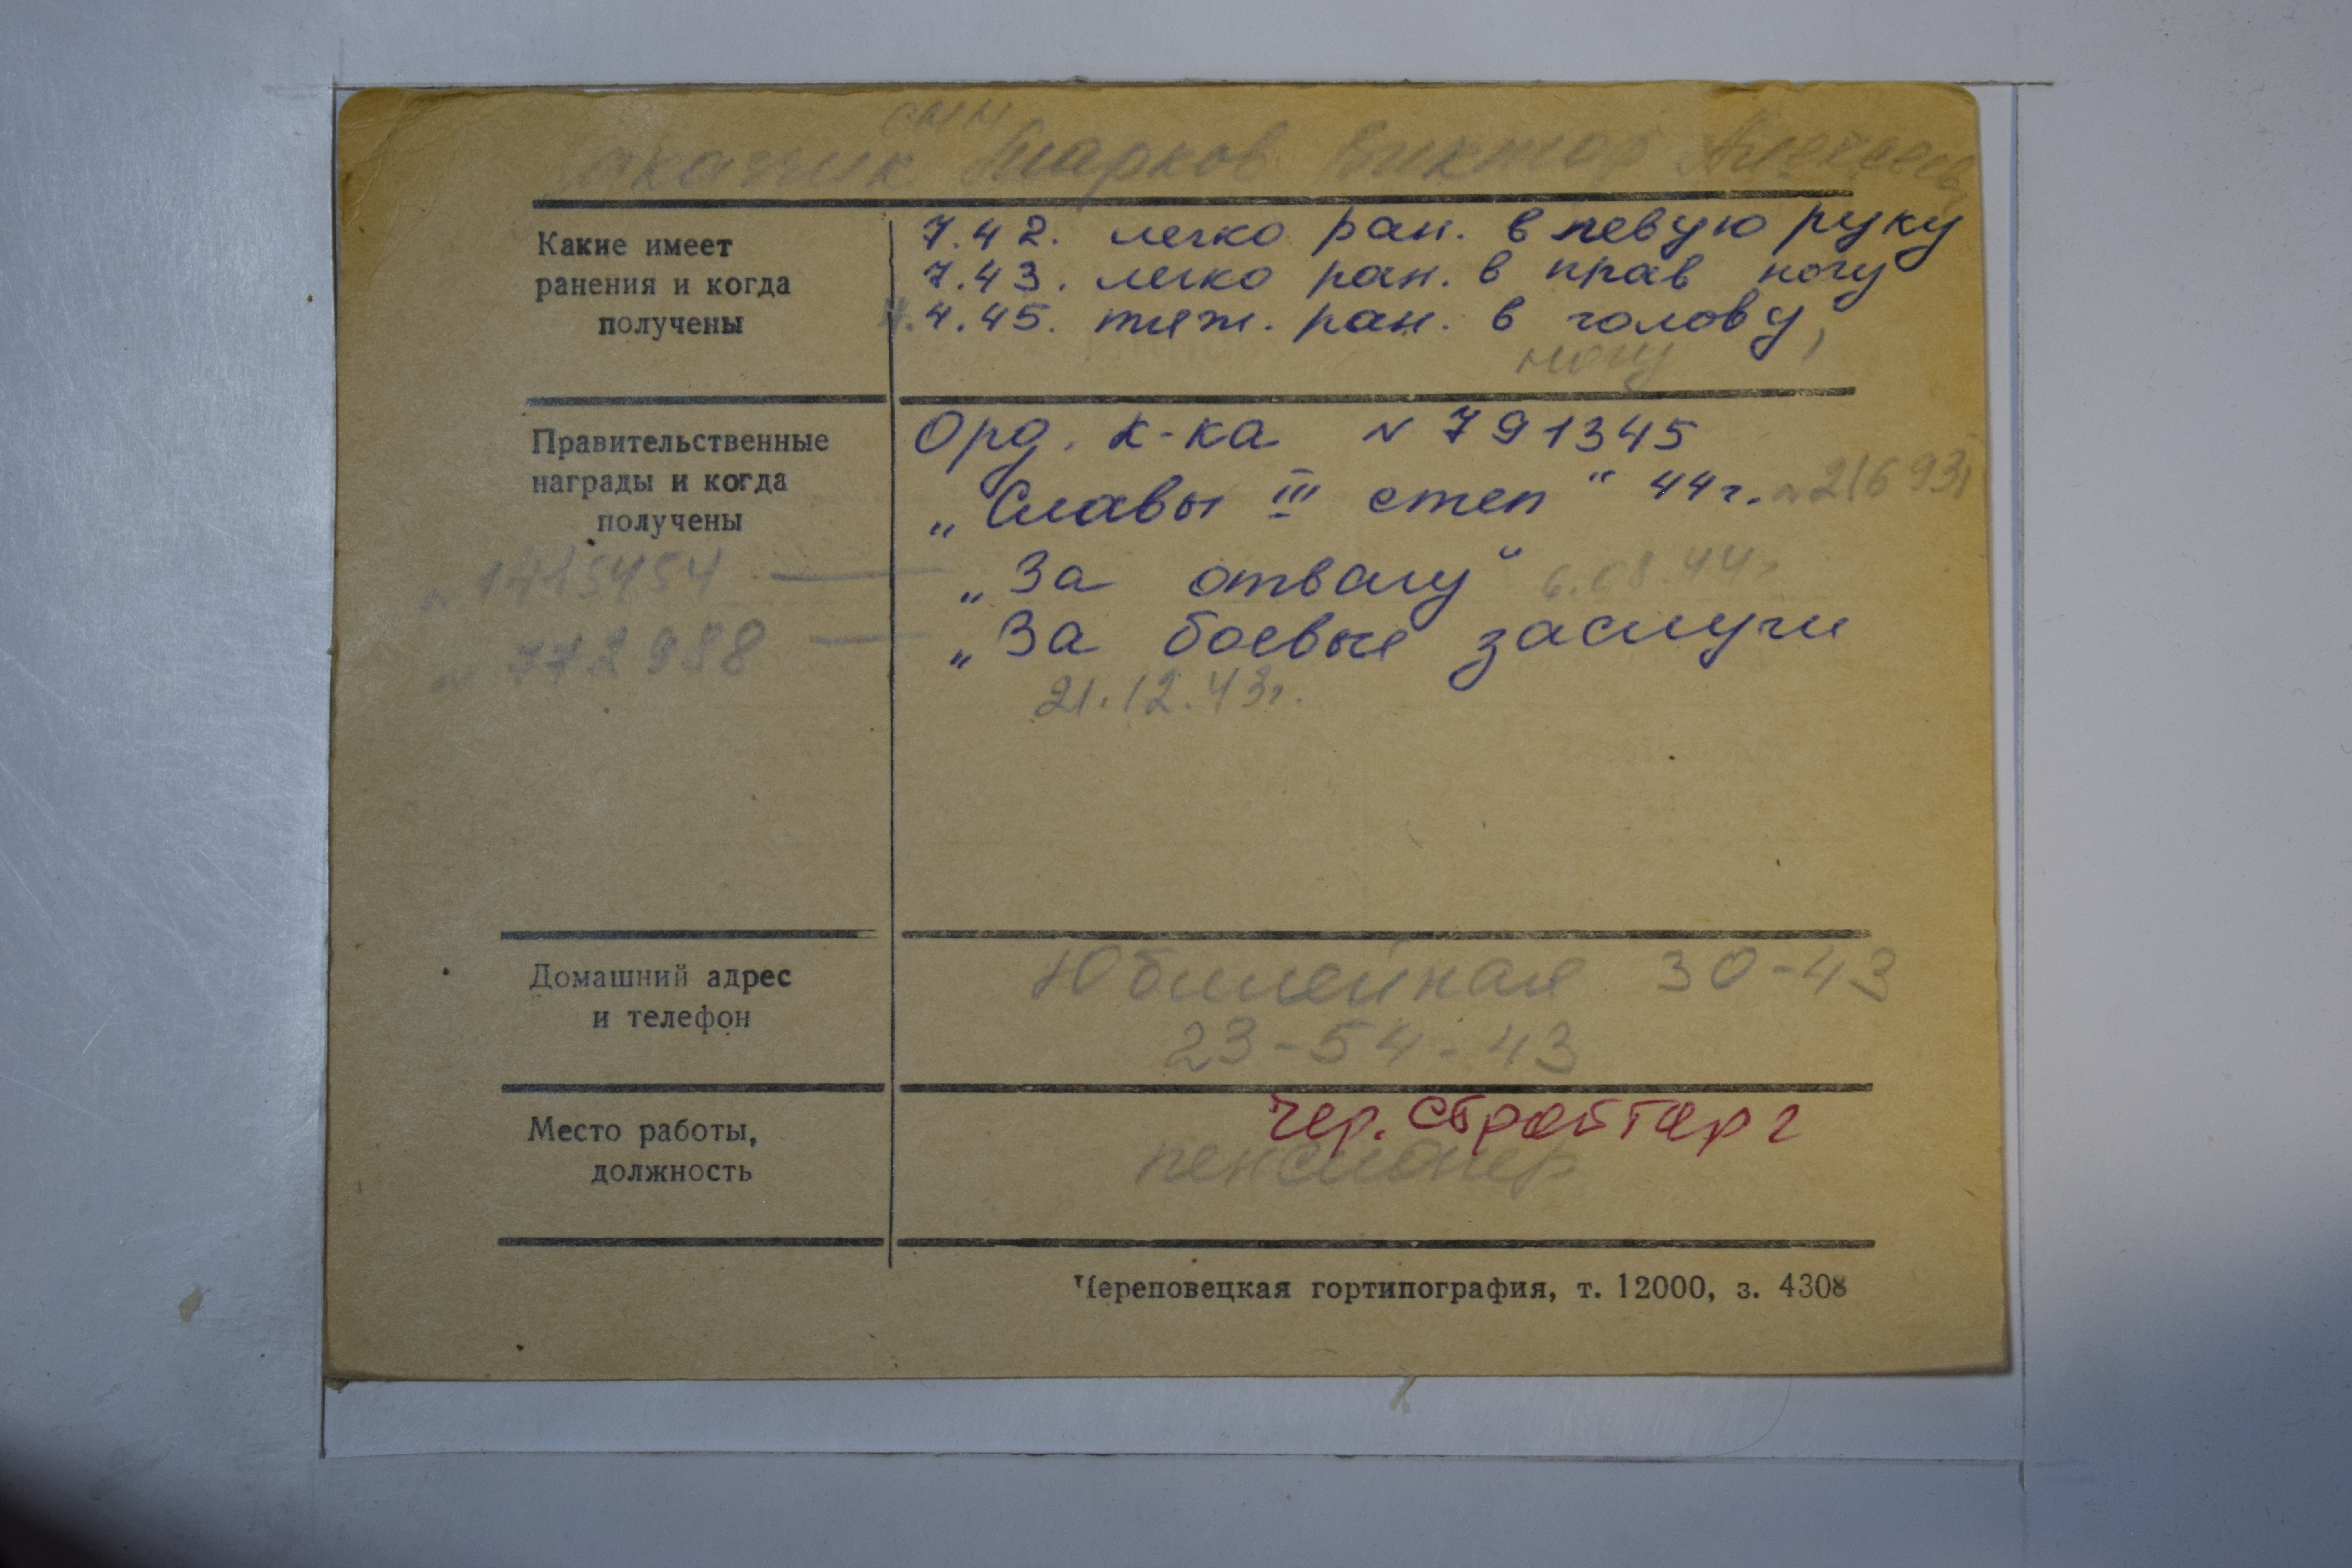 сын
Заказчик Шарков Виктор Алексеев
Какие имеет
ранения и когда
получены
7.42. легко ран. в левую руку
7.43. легко ран. в прав ногу
4.45. тяж. ран. в голову,
ногу
Правительственные
награды и когда
получены
Орд. К-ка № 791345
„Славы III степ" 44г. № 216931
№ 1415454 — „За отвагу" 6.08.44г.
№ 772988 — „За боевые заслуги
21.12.43г.
Домашний адрес
и телефон
Юбилейная 30-43
23-54-43
Место работы,
должность
Чер. Стройторг
пенсионер
Череповецкая гортипография, т. 12000, з. 4308